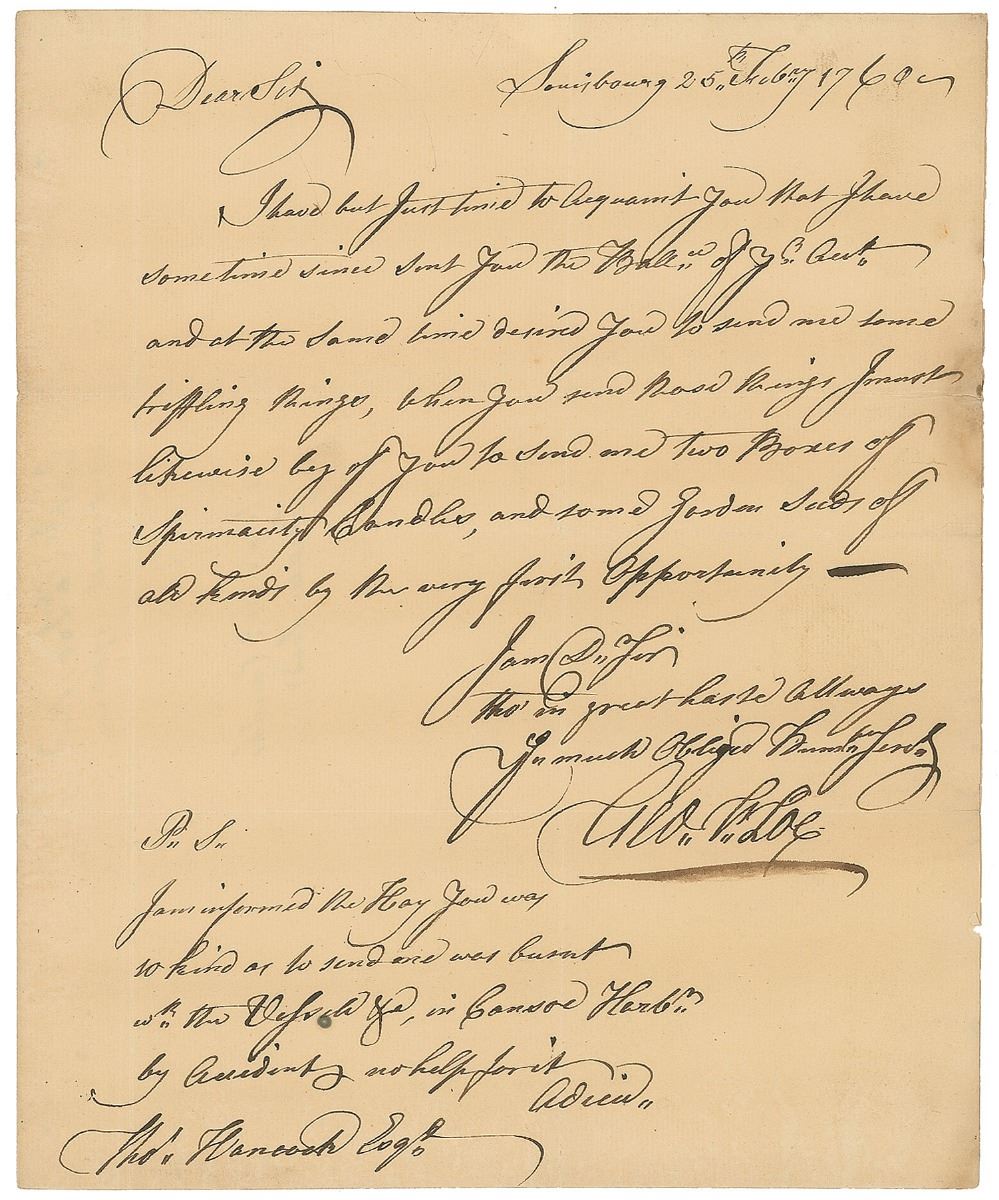 Dear Sir
Louisbourg 25th Febry 1760
I have but Just time to Acquaint You that I have
sometime since sent You the Ballce of yr Acct
and at the Same time desired You to send me some
triffling things, when You send those things I must
likewise beg of You to send me two Boxes of
Spirmacity Candles, and some Garden Seeds of
all kinds by the very first Opportunity —
I am Dr Sir
tho' in great haste Allways
Yr much Obliged Humble Servt
Geo:
P: S:
I am informed the Hay You was
so kind as to send me was burnt
wth the Vessell &ca, in Cansoe Harbr
by Accident, no help for it
Adieu
Thos Hancock Esqr